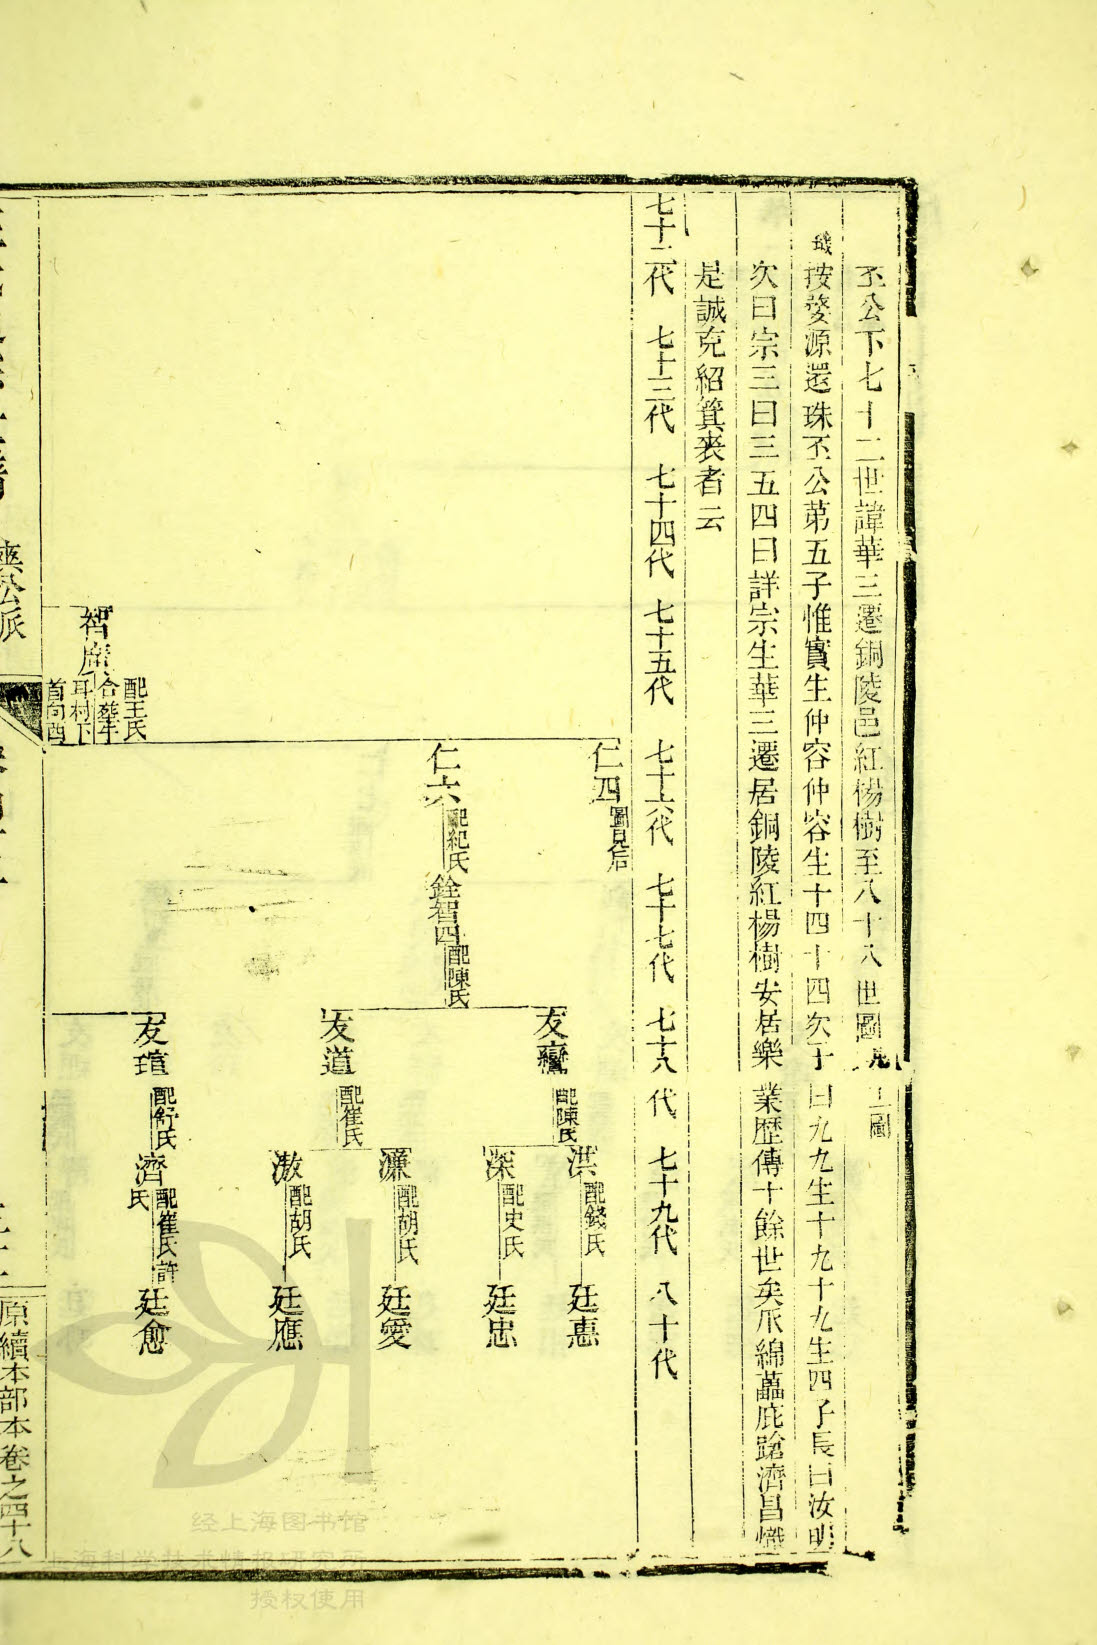 丕公下七十二世諱華三遷銅陵邑紅楊樹至八十八世圖 九 十圖
按婺源還珠丕公第五子惟實生仲容仲容生十四十四次子曰九九生十九十九生四子長曰汝明
次曰宗三曰三五四曰詳宗生華三遷居銅陵紅楊樹安居樂業歷傳十餘世矣瓜綿藟庇蹌濟昌熾
是誠克紹箕裘者云
七十二代 七十三代 七十四代 七十五代 七十六代 七十七代 七十八代 七十九代 八十代
仁四 圖見后
洪 配錢氏 廷惪
友鸞 配陳氏
深 配史氏 廷忠
仁六 配紀氏 銓智四 配陳氏
濂 配胡氏 廷愛
友道 配崔氏
激 配胡氏 廷應
友瑄 配舒氏 濟 配崔氏許氏 廷愈
智 配王氏
合葬牛
耳村下
首向酉
公派
原續本部本卷之四十八
经上海图书馆
上海科学技术情报研究所
授权使用